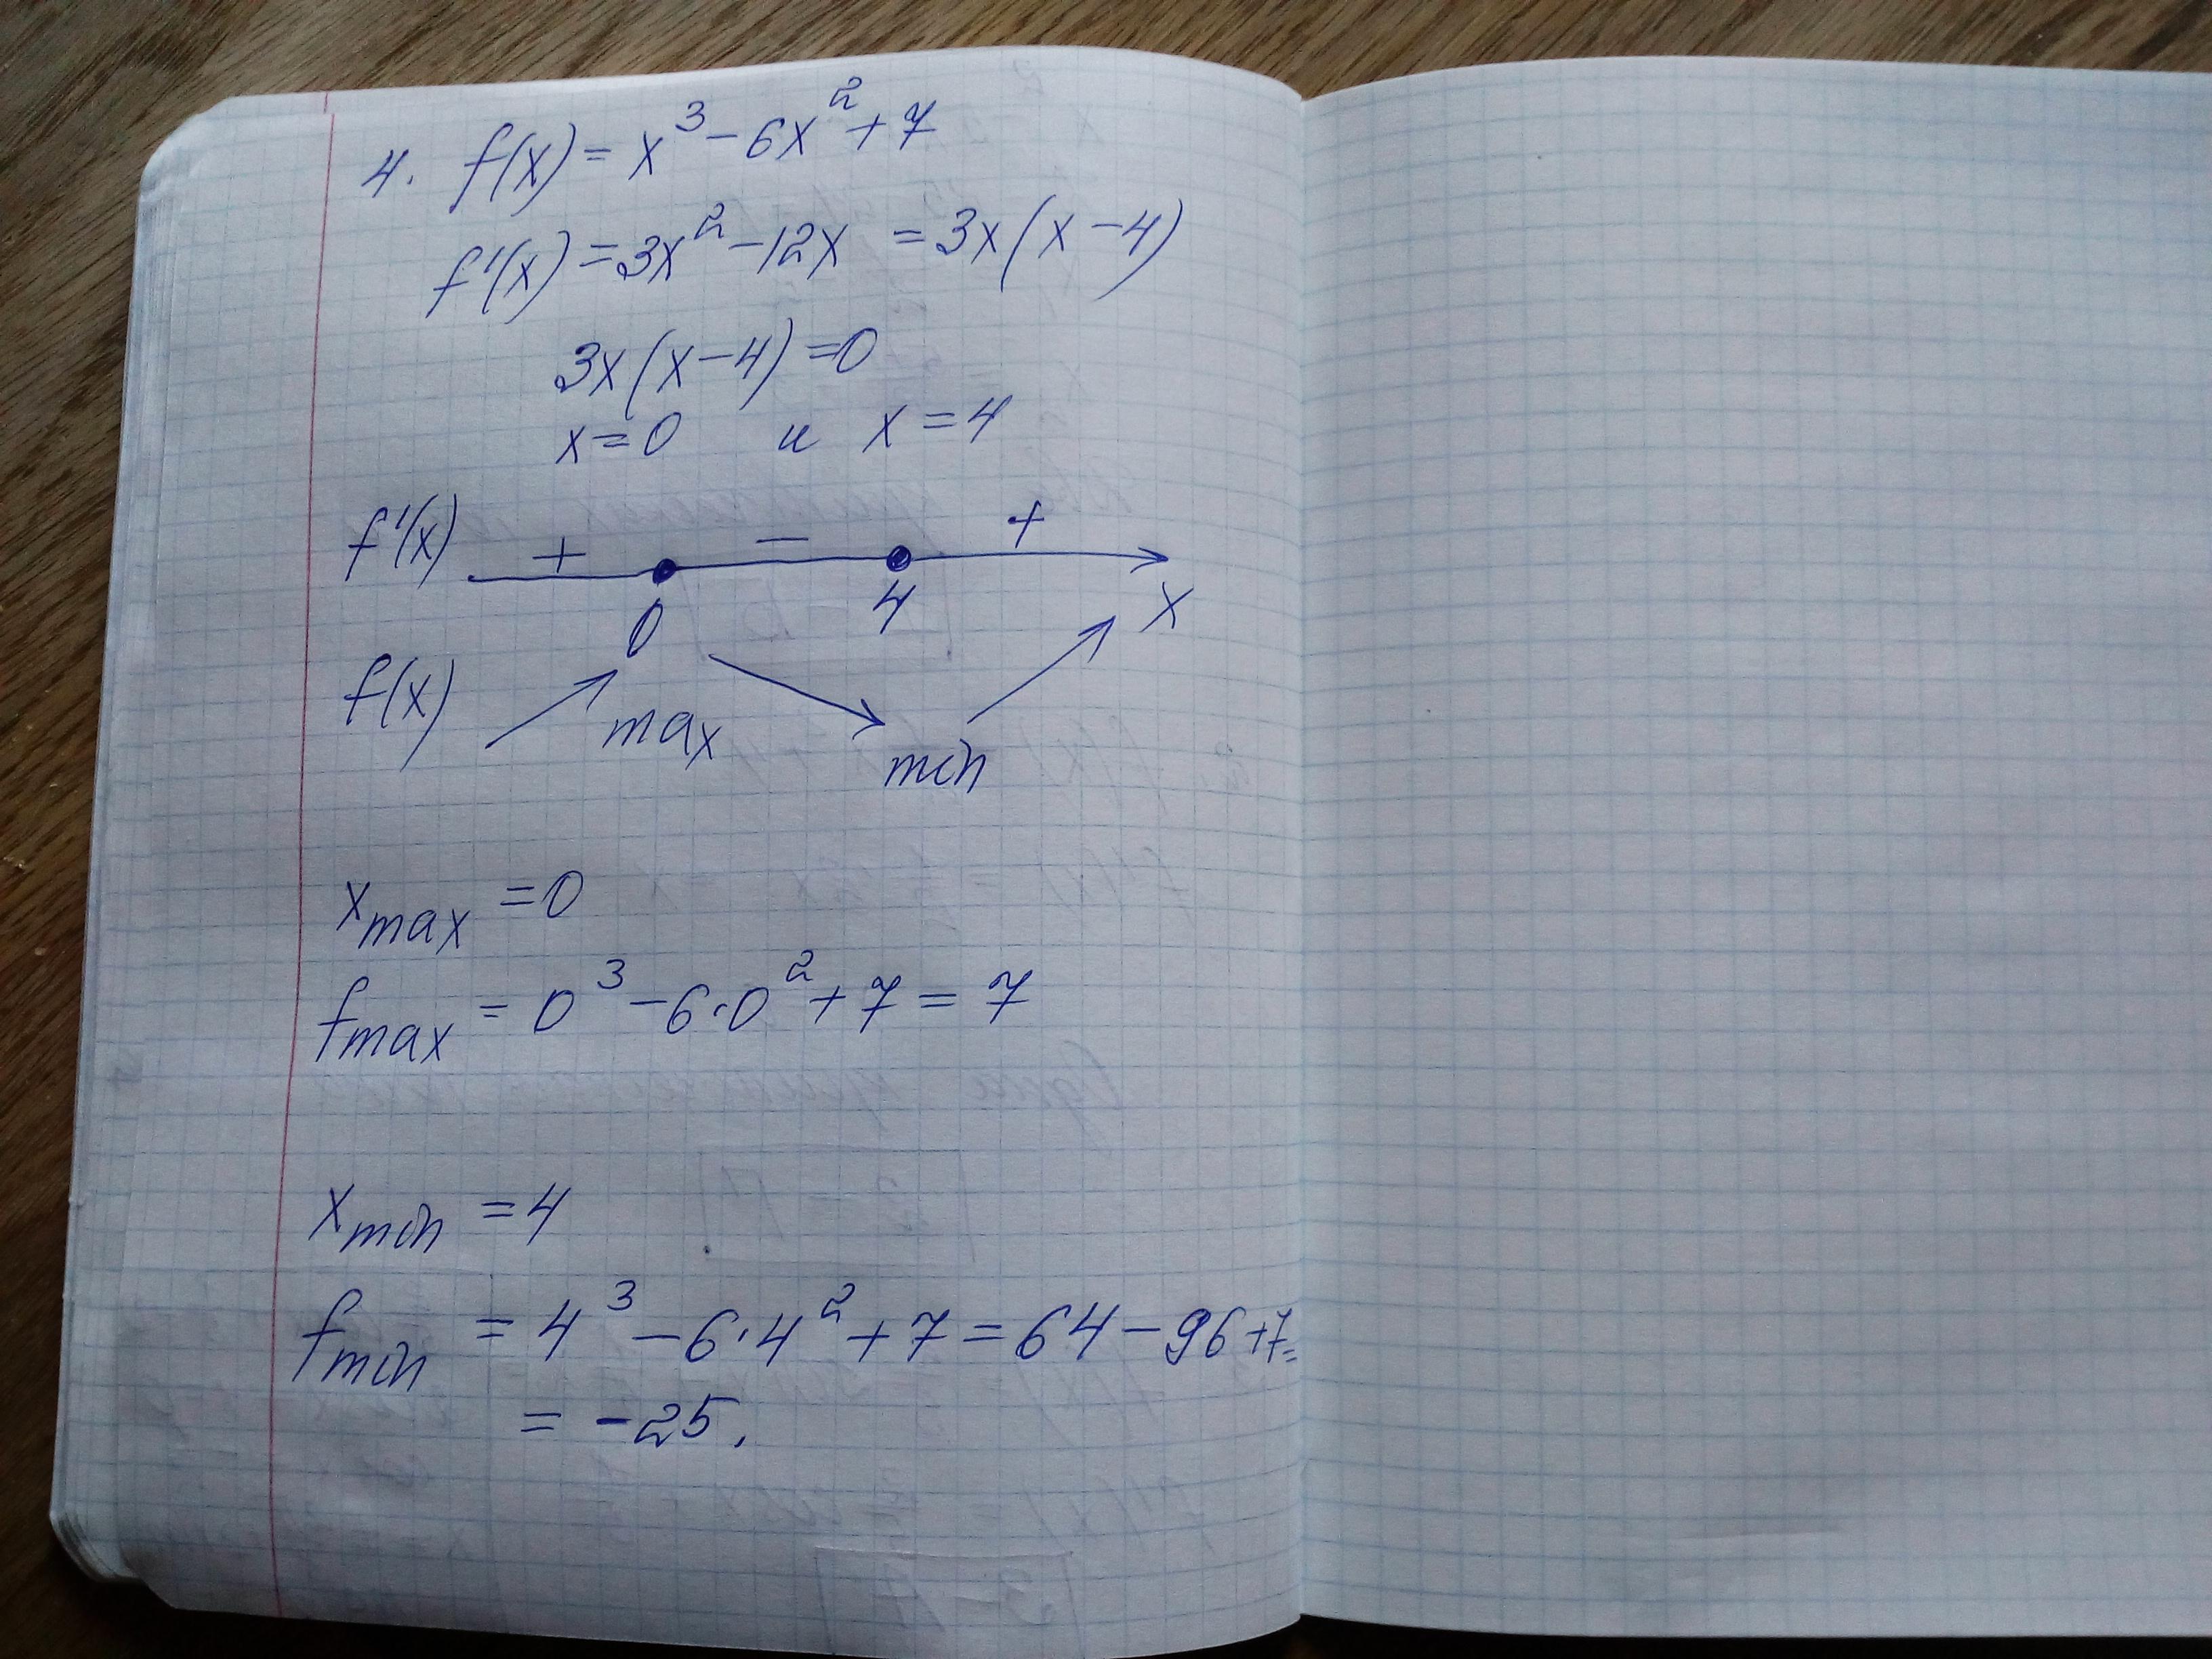 4. f(x) = x³ - 6x² + 7
f'(x) = 3x² - 12x = 3x(x - 4)
3x(x - 4) = 0
x = 0 и x = 4
f'(x) + - +
0 4 x
f(x) max min
x max = 0
f max = 0³ - 6·0² + 7 = 7
x min = 4
f min = 4³ - 6·4² + 7 = 64 - 96 + 7 =
= -25.